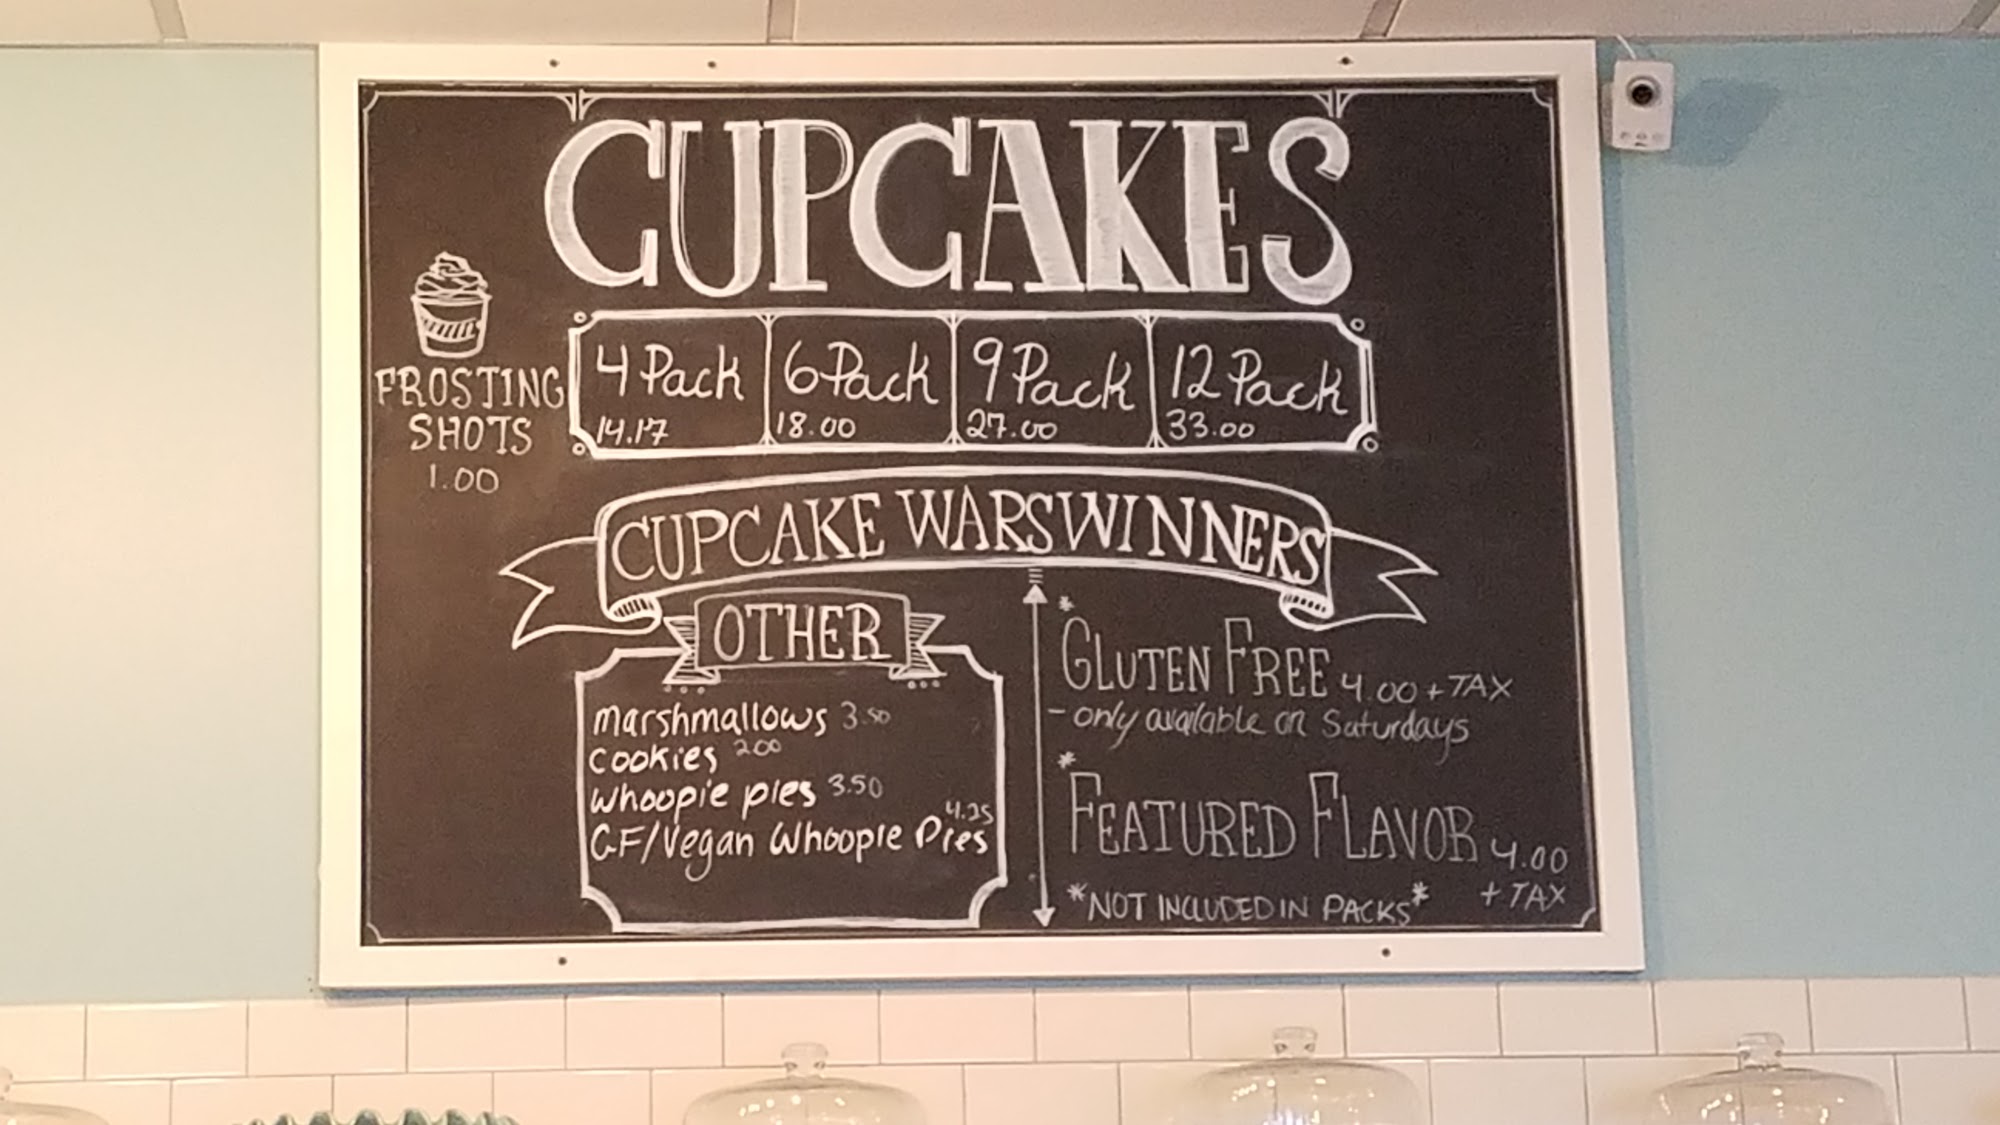 CUPCAKES
FROSTING
SHOTS
1.00
4 Pack
14.17
6 Pack
18.00
9 Pack
27.00
12 Pack
33.00
CUPCAKE WARS WINNERS
OTHER
marshmallows 3.50
cookies 2.00
whoopie pies 3.50
GF/Vegan Whoopie Pies 4.25
*GLUTEN FREE 4.00 + TAX
- only available on Saturdays
*FEATURED FLAVOR 4.00
+ TAX
*NOT INCLUDED IN PACKS*